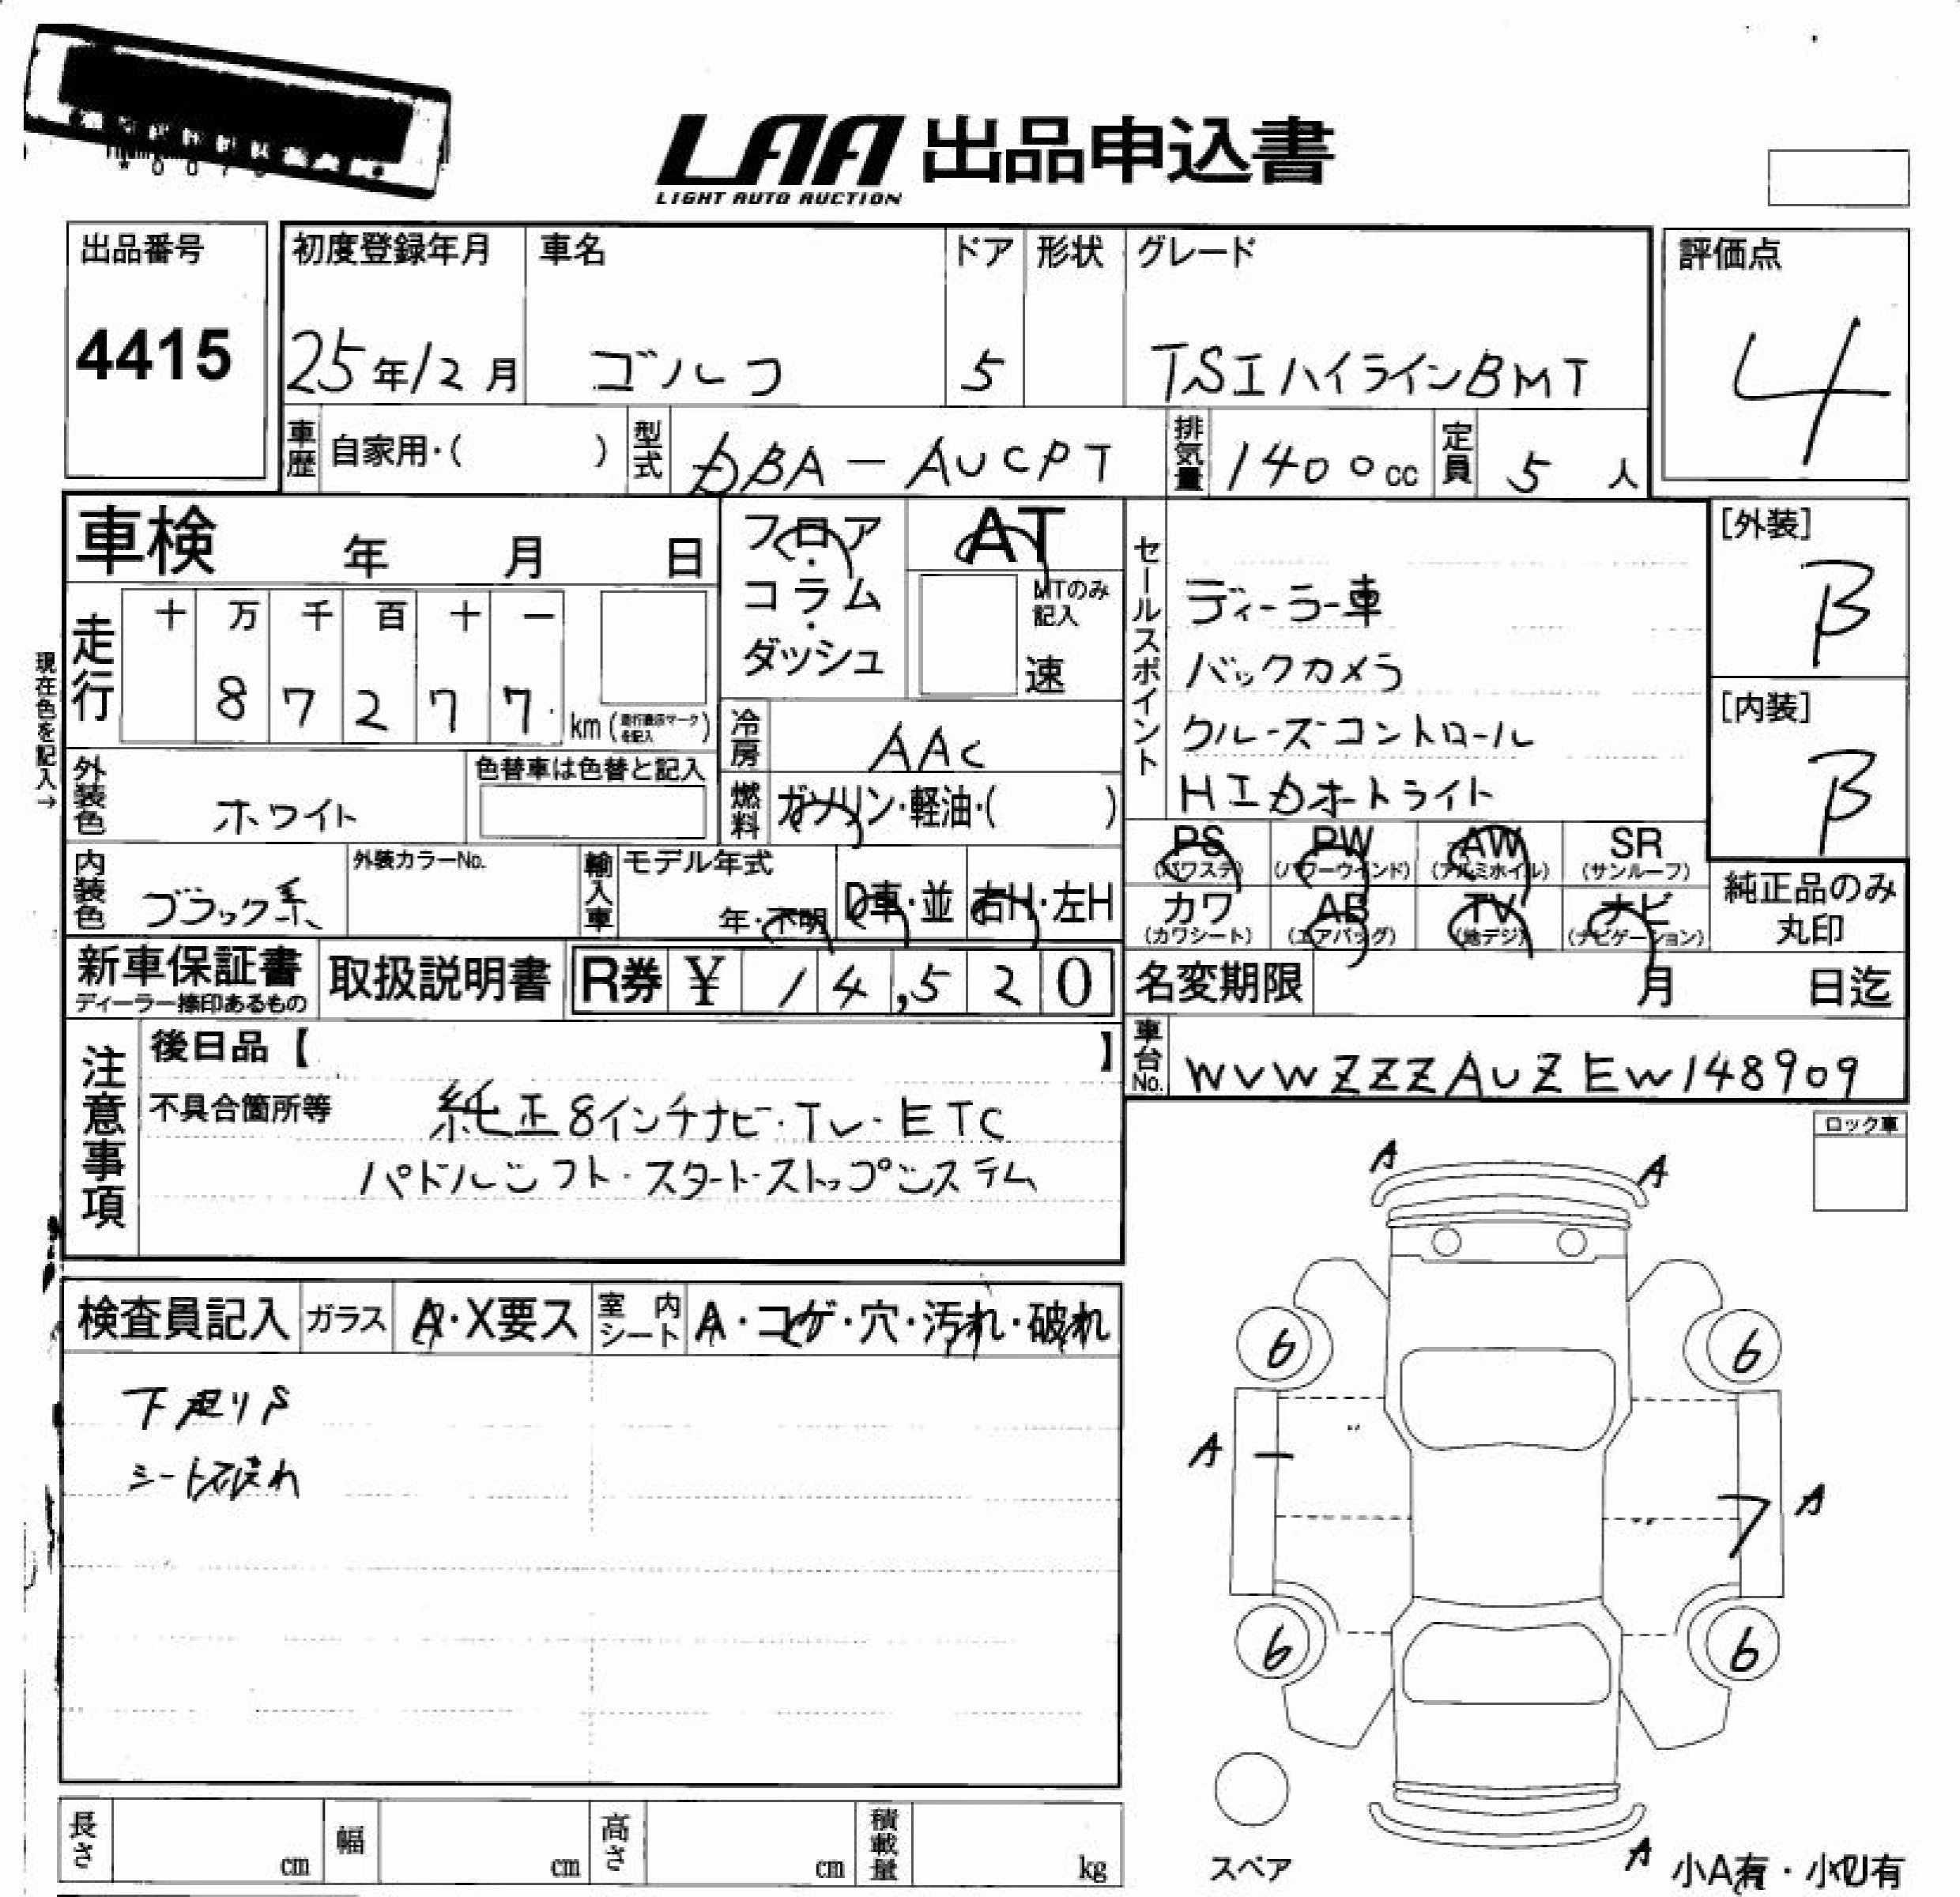 LAA 出品申込書
LIGHT AUTO AUCTION
出品番号
4415
初度登録年月
25年12月
車名
ゴルフ
ドア
5
形状
グレード
TSIハイラインBMT
評価点
4
車歴
自家用・( )
型式
DBA-AUCPT
排気量
1400cc
定員
5人
車検 年 月 日
フロア・コラム・ダッシュ
AT
MTのみ記入
速
セールスポイント
ディーラー車
バックカメラ
クルーズコントロール
HIDオートライト
[外装]
B
[内装]
B
現在色を記入→
走行
十 万 千 百 十 一
8 7 2 7 7
km
冷房
AAC
燃料
ガソリン・軽油・( )
外装色
ホワイト
色替車は色替と記入
内装色
ブラック系
外装カラーNo.
輸入車
モデル年式
年・不明
D車・並
右H・左H
PS (パワステ)
PW (パワーウインド)
AW (アルミホイル)
SR (サンルーフ)
カワ (カワシート)
AB (エアバッグ)
TV (地デジ)
ナビ (ナビゲーション)
純正品のみ丸印
新車保証書
ディーラー捺印あるもの
取扱説明書
R券 ¥ 14,520
名変期限 月 日迄
車台No.
WVWZZZAUZEW148909
注意事項
後日品【 】
不具合箇所等
純正8インチナビ・TV・ETC
パドルシフト・スタート・ストップシステム
ロック車
検査員記入
ガラス
A・X要ス
室内シート
A・コゲ・穴・汚れ・破れ
シート破れ
A
A
6
6
A
A
6
6
スペア
A
小A有・小U有
長さ cm
幅 cm
高さ cm
積載量 kg